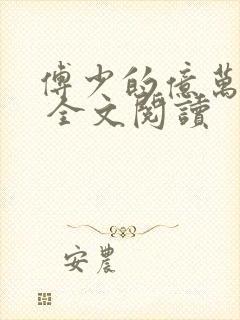 傅少的億萬
全文閱讀
安農